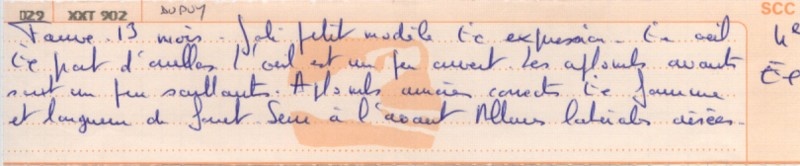 029 XXT 902 DUPUY SCC
Fauve. 13 mois. Joli petit modèle tte expression. Tte oeil
tte port d'oreilles L'oeil est un peu ouvert. Les aplombs avants
sont un peu saillants. Aplombs arrières corrects tte
et longueur de fouet. Serré à l'avant Allures latérales aisées.